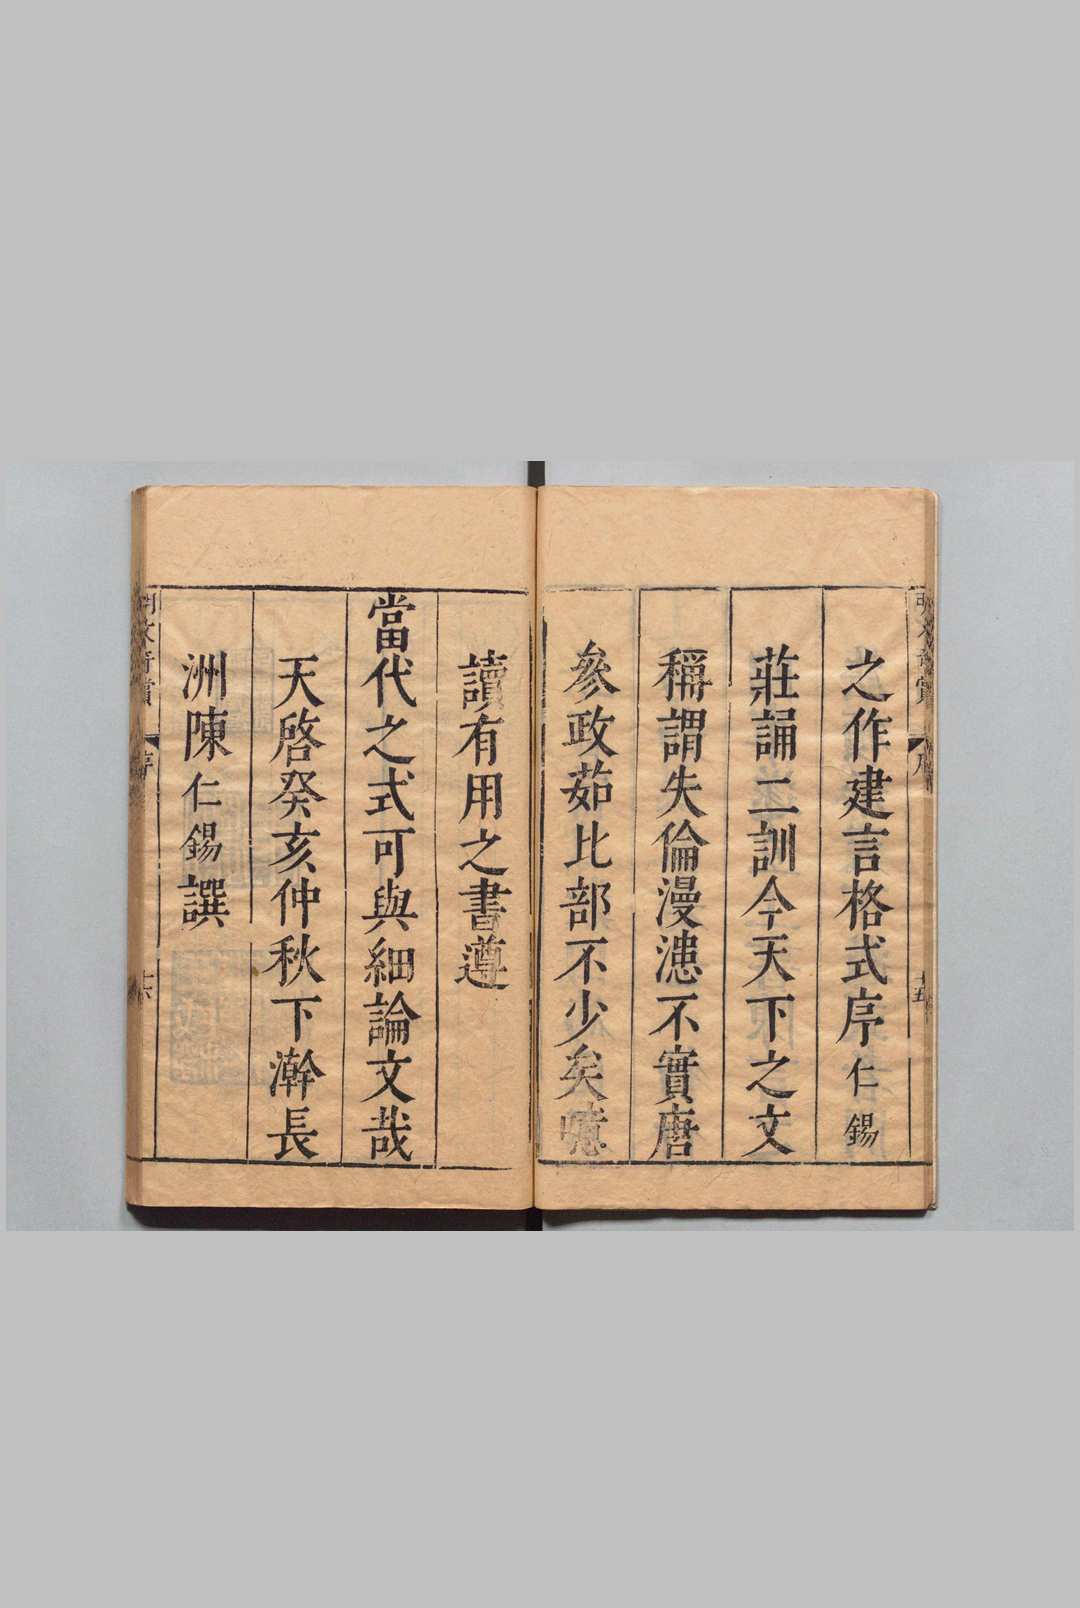 之作建言格式序仁錫
莊誦二訓今天下之文
稱謂失倫漫漶不實唐
參政茹比部不少矣噫
讀有用之書遵
當代之式可與細論文哉
天啓癸亥仲秋下澣長
洲陳仁錫譔
明文奇賞
序
十五
明文奇賞
序
十六